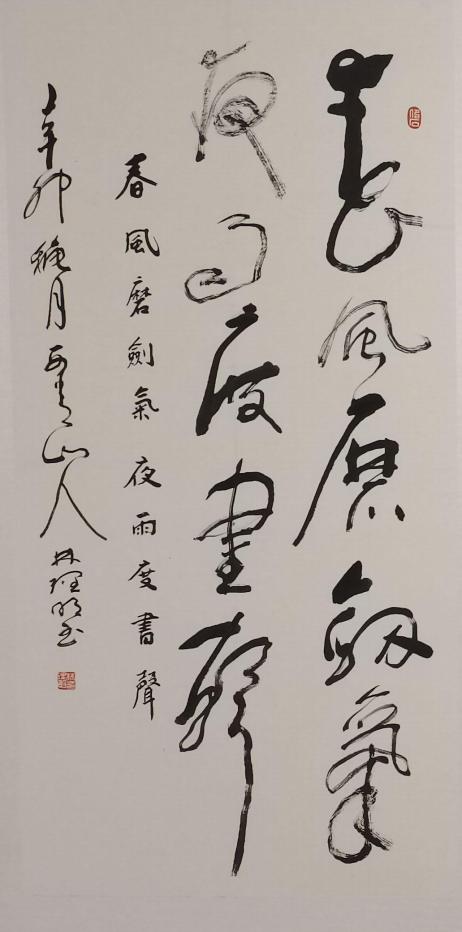 春風磨劍氣
夜雨度書聲
春風磨劍氣夜雨度書聲
辛卯 月 山人